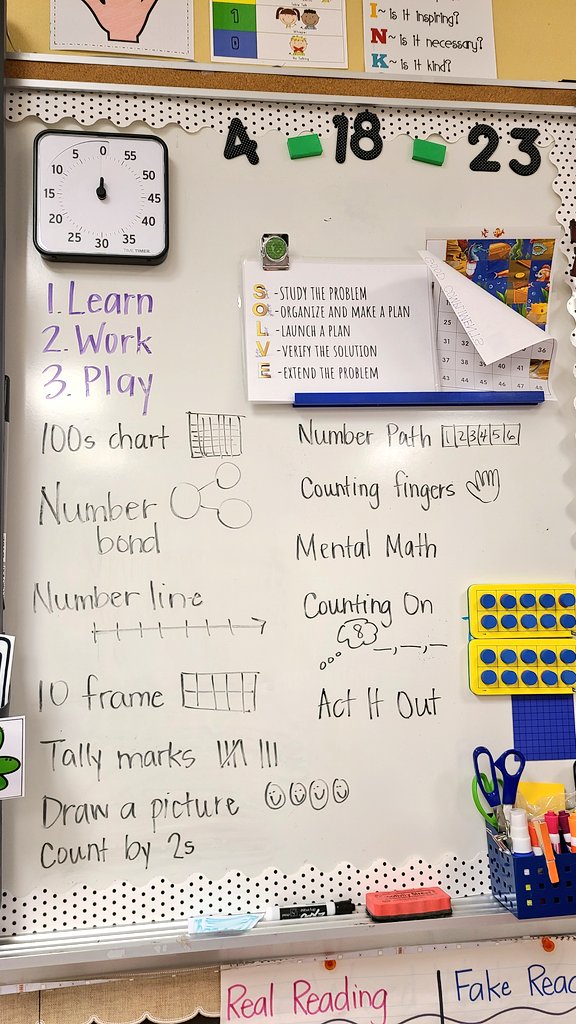 1
0
Whisper
No Talking
I ~ Is it inspiring?
N ~ Is it necessary?
K ~ Is it kind?
4 18 23
0
55
50
45
40
35
30
25
20
15
10
5
TIME TIMER
S -STUDY THE PROBLEM
O -ORGANIZE AND MAKE A PLAN
L -LAUNCH A PLAN
V -VERIFY THE SOLUTION
E -EXTEND THE PROBLEM
36
37 38 39 40 41 42
43 44 45 46 47 48
1. Learn
2. Work
3. Play
100s chart
Number bond
Number line
10 frame
Tally marks
Draw a picture
Count by 2s
Number Path 1 2 3 4 5 6
Counting fingers
Mental Math
Counting On
8
Act It Out
Real Reading
Fake Read